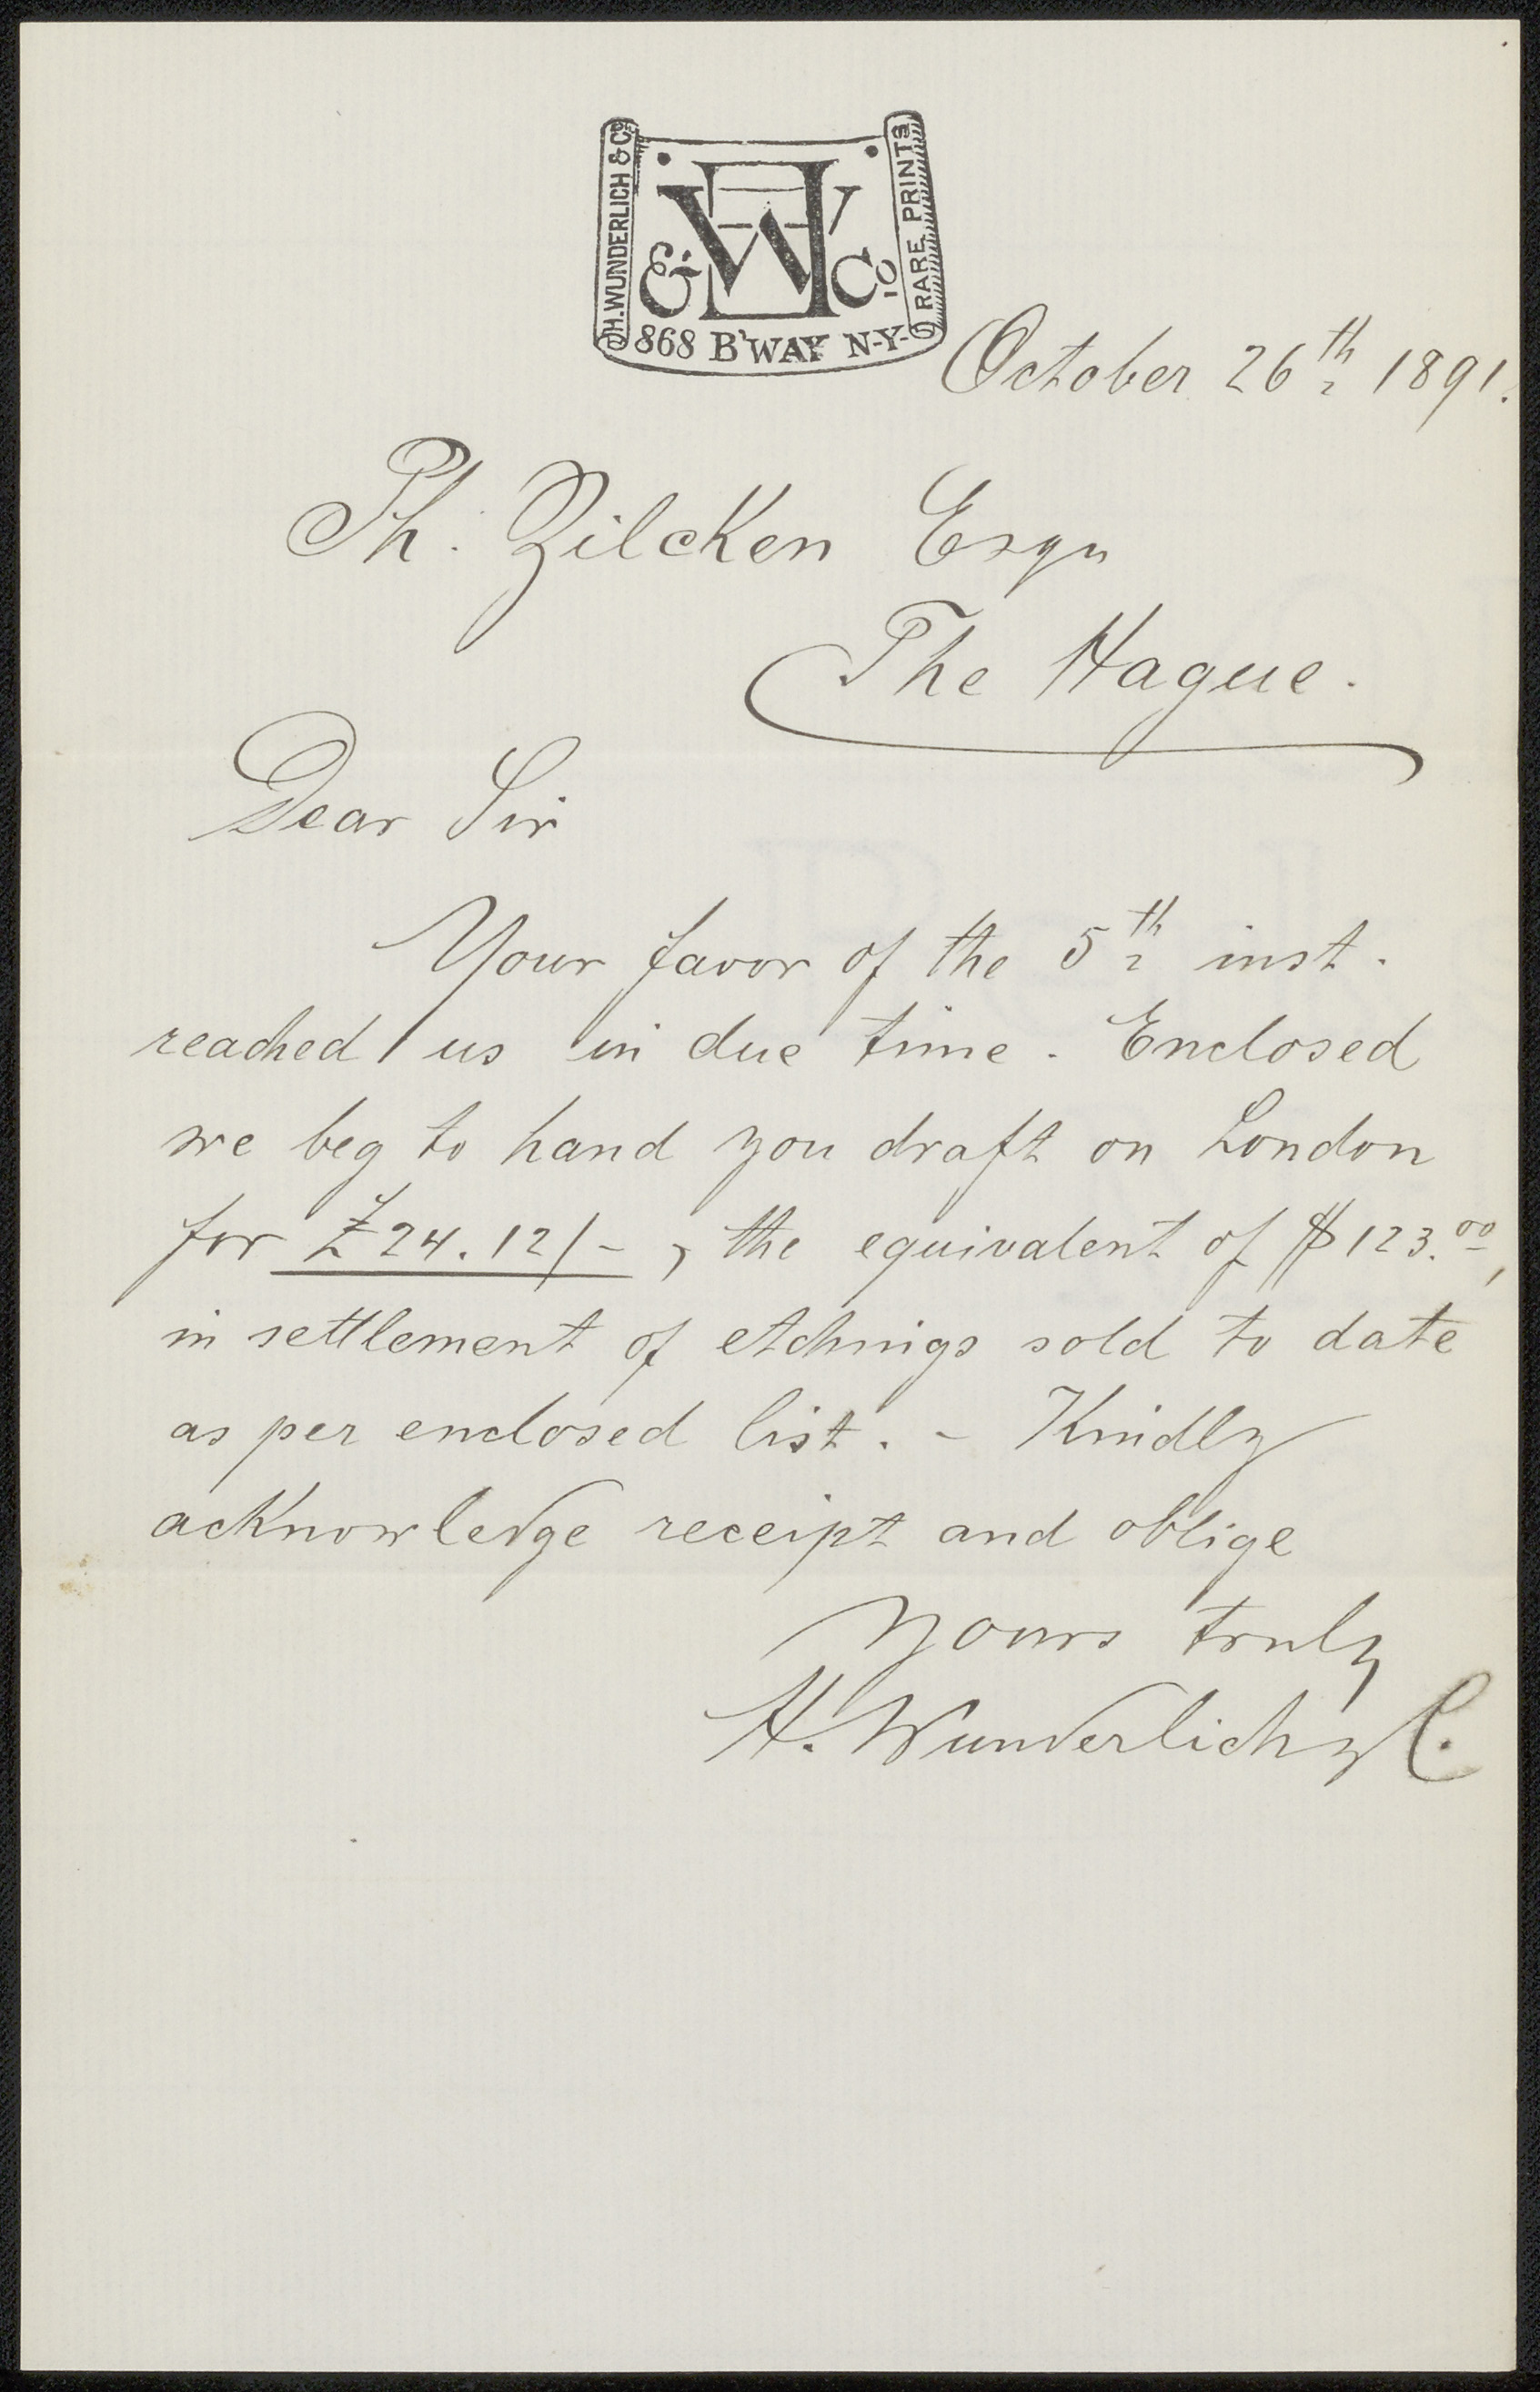 H. WUNDERLICH & Co.
HW & Co
RARE PRINTS
868 B'WAY N-Y-
October 26th 1891.
Ph. Zilcken Esqu
The Hague.
Dear Sir
Your favor of the 5th inst.
reached us in due time. Enclosed
we beg to hand you draft on London
for £24.12/-, the equivalent of $123.00,
in settlement of etchings sold to date
as per enclosed list. - Kindly
acknowledge receipt and oblige
Yours truly
H. Wunderlich & C.